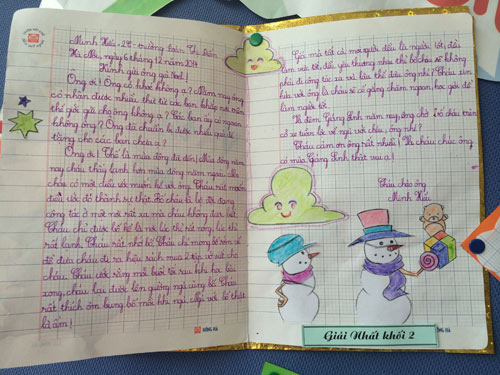 Minh Hiếu - 2E - trường Đoàn Thị Điểm
Hà Nội, ngày 6 tháng 12 năm 2014
Kính gửi ông già Noel!
Ông ơi! Ông có khoẻ không ạ? Năm nay ông
có nhận được nhiều thư từ các bạn khắp nơi trên
thế giới gửi cho ông không ạ? Các bạn ấy có ngoan
không ông? Ông đã chuẩn bị được nhiều quà để
tặng cho các bạn chưa ạ?
Ông ơi! Thế là mùa đông đã đến! Mùa đông năm
nay cháu thấy lạnh hơn mùa đông năm ngoái. Mà
cháu có một điều ước muốn kể với ông. Cháu rất muốn
điều ước đó thành sự thật. Bố cháu là bộ đội đang
công tác ở một nơi rất xa mà cháu không được biết.
Cháu chỉ được bố kể là nơi đó rất nóng, lúc thì
rất lạnh. Cháu rất nhớ bố. Cháu chỉ mong bố sớm về
để đưa cháu đi ra hiệu sách mua ô tô, vở nữa cho
cháu. Cháu ước rằng mỗi buổi tối sau khi học bài
xong, cháu lại được lên giường ngủ cùng bố. Cháu
rất thích ôm bụng bố mỗi khi ngủ. Ngủ với bố thật
là ấm!
HỒNG HÀ
Giá mà tất cả mọi người đều là người tốt, đều
làm việc tốt, đều yêu thương nhau thì bố cháu sẽ không
phải đi công tác xa và lâu thế đâu ông nhỉ? Cháu xin
hứa với ông là cháu sẽ cố gắng chăm ngoan, học giỏi để
làm người tốt.
Và đêm Giáng Sinh năm nay, ông chở bố cháu trên
cỗ xe tuần lộc về ngủ với cháu, ông nhé!
Cháu cảm ơn ông rất nhiều! Và cháu chúc ông
có mùa Giáng Sinh thật vui ạ!
Cháu chào ông
Minh Hiếu
Giải Nhất khối 2
HỒNG HÀ